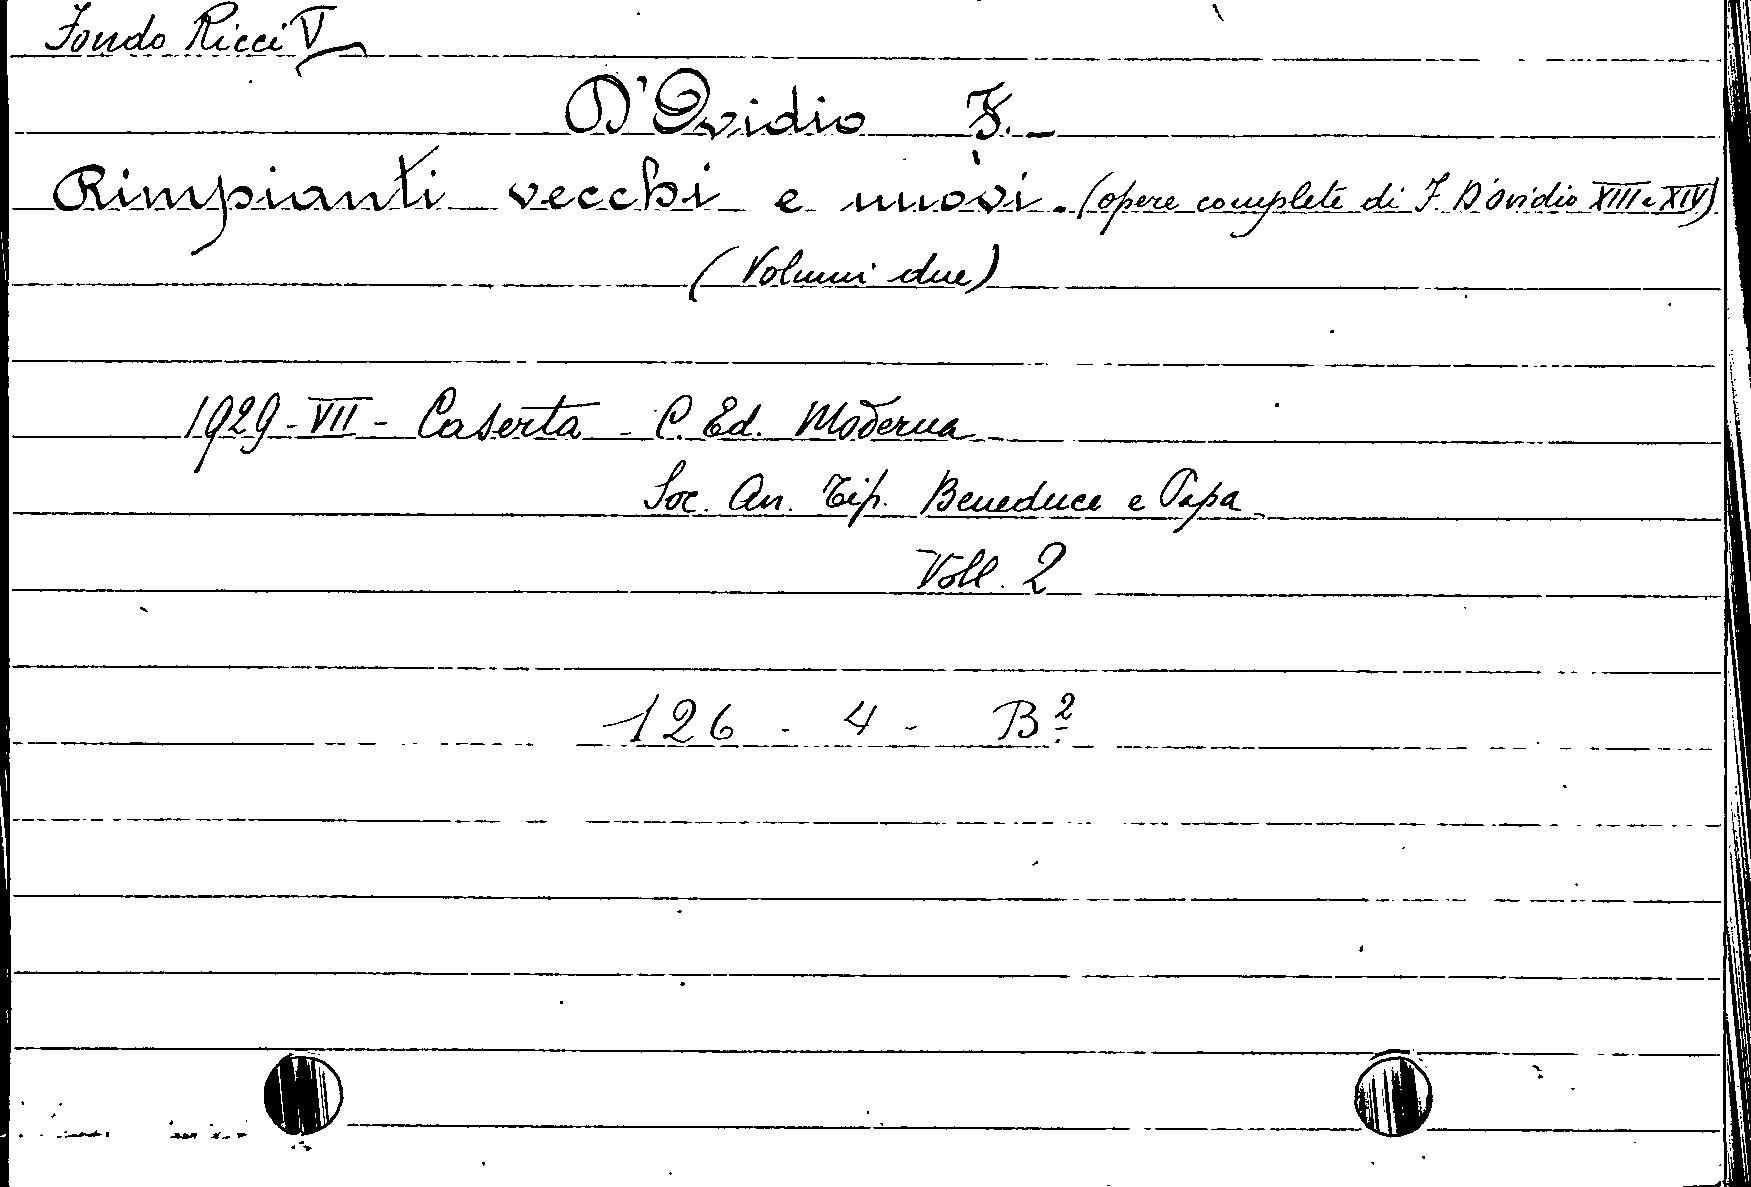 Fondo Ricci V
D'Ovidio F. -
Rimpianti vecchi e nuovi. (opere complete di F. D'Ovidio XIII e XIV)
(Volumi due)
1929 - VII - Caserta - C. Ed. Moderna
Soc. An. Tip. Beneduce e Papa
Voll. 2
126 - 4 - B²